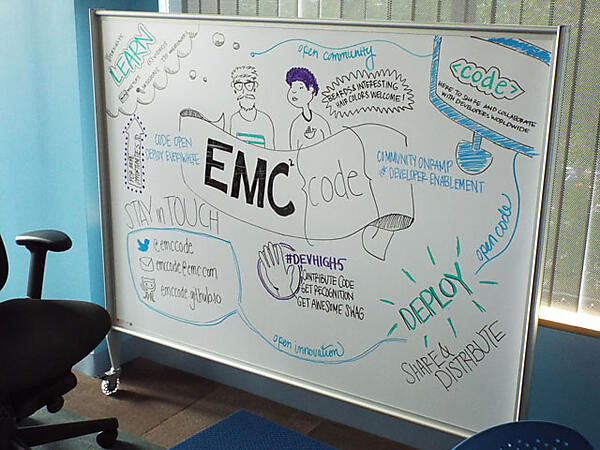 LEARN
open community
BEARDS & INTERESTING
HAIR COLORS WELCOME!
<code>
HERE TO SHARE AND COLLABORATE
WITH DEVELOPERS WORLDWIDE
CODE OPEN
DEPLOY EVERYWHERE
EMC2 {code}
COMMUNITY ONRAMP
DEVELOPER ENABLEMENT
open code
STAY in TOUCH
@emccode
emccode@emc.com
emccode.github.io
#DEVHIGH5
CONTRIBUTE CODE
GET RECOGNITION
GET AWESOME SWAG
DEPLOY
SHARE &
DISTRIBUTE
open innovation